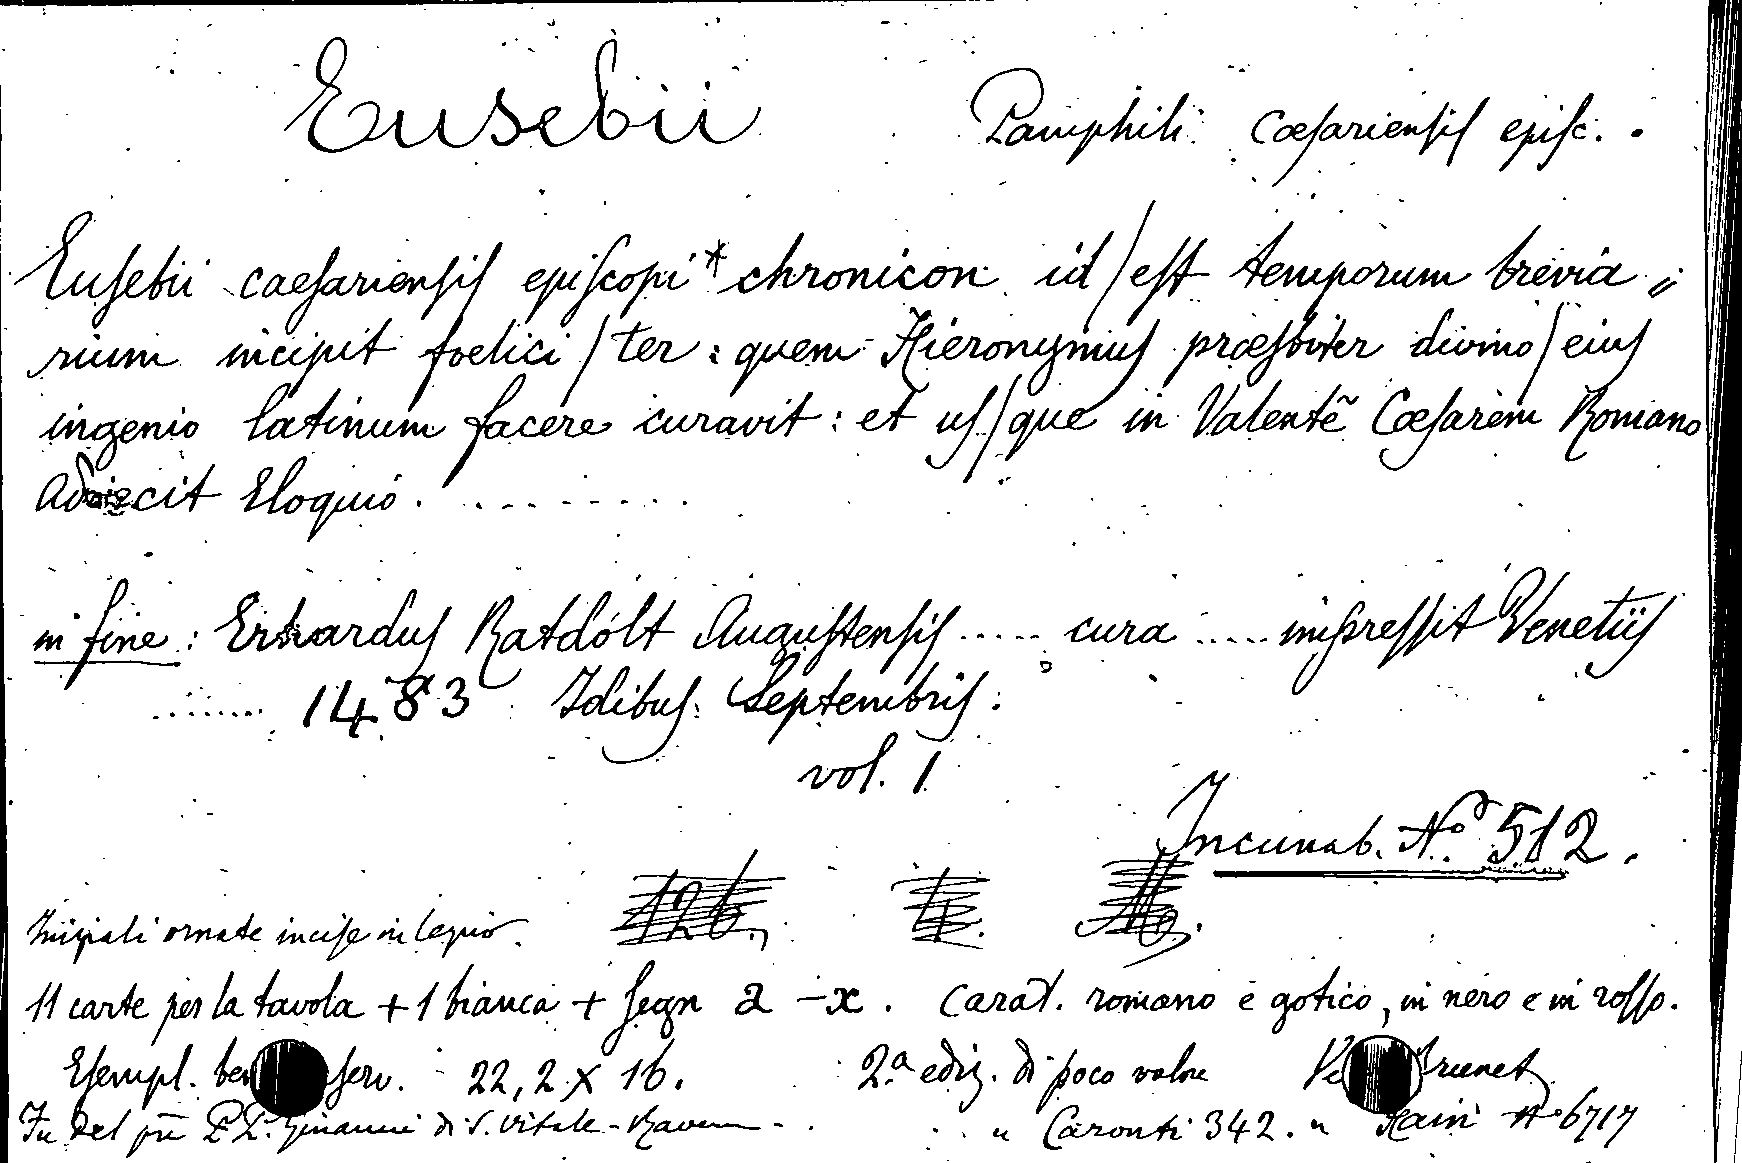 Eusebii Pamphili Cæsariensis episc.
Eusebii caesariensis episcopi * chronicon id / est temporum brevia=
rium incipit foelici / ter : quem Hieronymus præsbiter divino / eius
ingenio latinum facere curavit : et us / que in Valentē Cæsarem Romano
adiecit Eloquio . . . . . . . . .
in fine : Erhardus Ratdolt Augustensis ..... cura ..... impressit Venetiis
........ 1483 Idibus Septembris.
vol. 1
Incunab. N.º 512.
126. 4.
Iniziali ornate incise in legno.
11 carte per la tavola + 1 bianca + segn a - x . Carat. romano e gotico, in nero e in rosso.
Esempl. ben serv. 22,2 x 16. 2.ª ediz. di poco valore Brunet
Fu del P. Ginanni di S. Vitale - Ravenna - " Caronti 342. " Hain Nº 6717